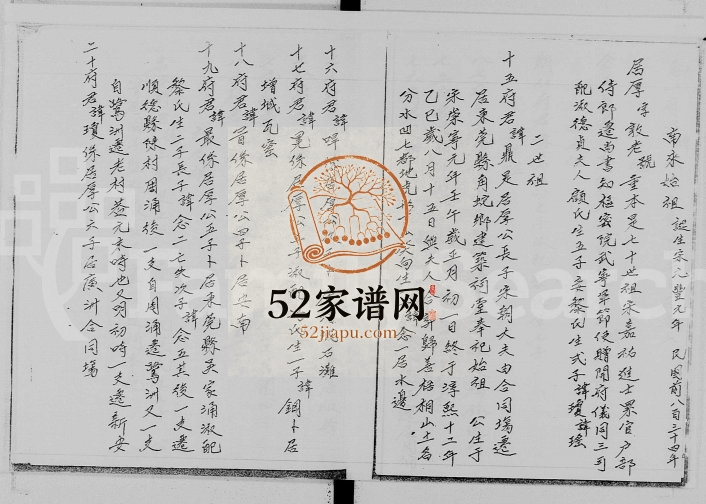 南來始祖 誕生宋元豐元年 民國前八百三十四年
居厚字敦老號重本是七十世祖宋嘉祐進士累官户部
侍郎遷尚書知樞密院武寧軍節使贈開府儀同三司
配淑德貞夫人顧氏生五子妾黎氏生弍子諱瓊諱瑤
二世祖
十五府君諱鼎是居厚公長子宋朝大夫由合同塲遷
居東莞縣角 鄉建築祠堂奉祀始祖 公生于
宋崇寧元年壬午歲正月初一日終于淳熙十二年
乙巳歲八月十五日與夫人合 歸善梧桐山土名
分水凹七都地 念一居水邊
十六府君諱 居厚公 卜 石灘
十七府君諱晃係居厚 子淑配 氏生一子諱鋼卜居
增城瓦窰
十八府君諱首係居厚公四子卜居安南
十九府君諱最係居厚公五子卜居東莞縣吴家涌淑配
黎氏生二子長子諱念二七失次子諱念五其後一支遷
順德縣陳村周涌後一支自周涌遷鷺洲又一支
自鷺洲遷老村 元末時也又明初時一支遷新安
二十府君諱瓊係居厚公六子居廣洲合同塲
52家谱网
52jiapu.com